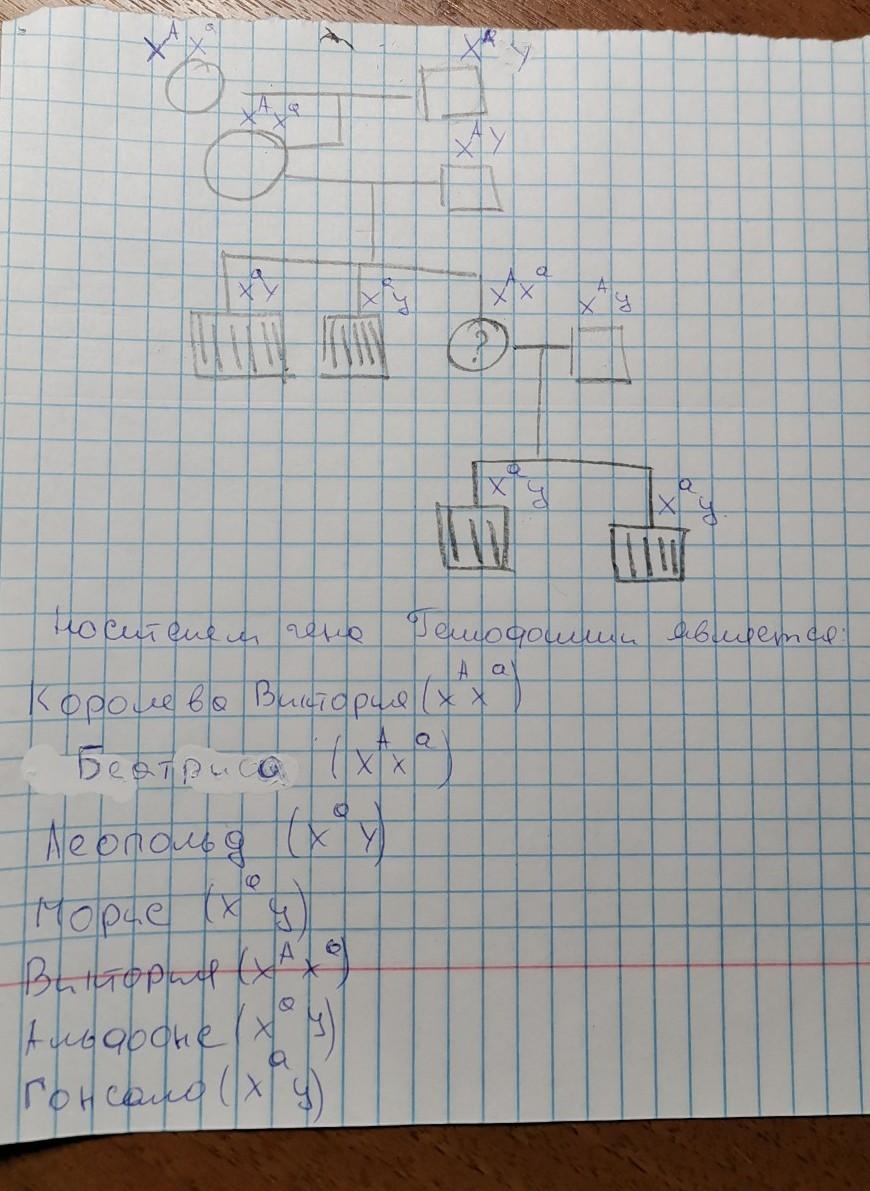 X^A X^a X^A Y
X^A X^a
X^A Y
X^a Y X^a y X^A X^a X^A y
?
X^a y X^a y
Носителем гена Гемофилии является:
Королева Виктория (X^A X^a)
Беатриса (X^A X^a)
Леопольд (X^a Y)
Морис (X^a y)
Виктория (X^A X^a)
Альфонс (X^a y)
Гонсало (X^a y)